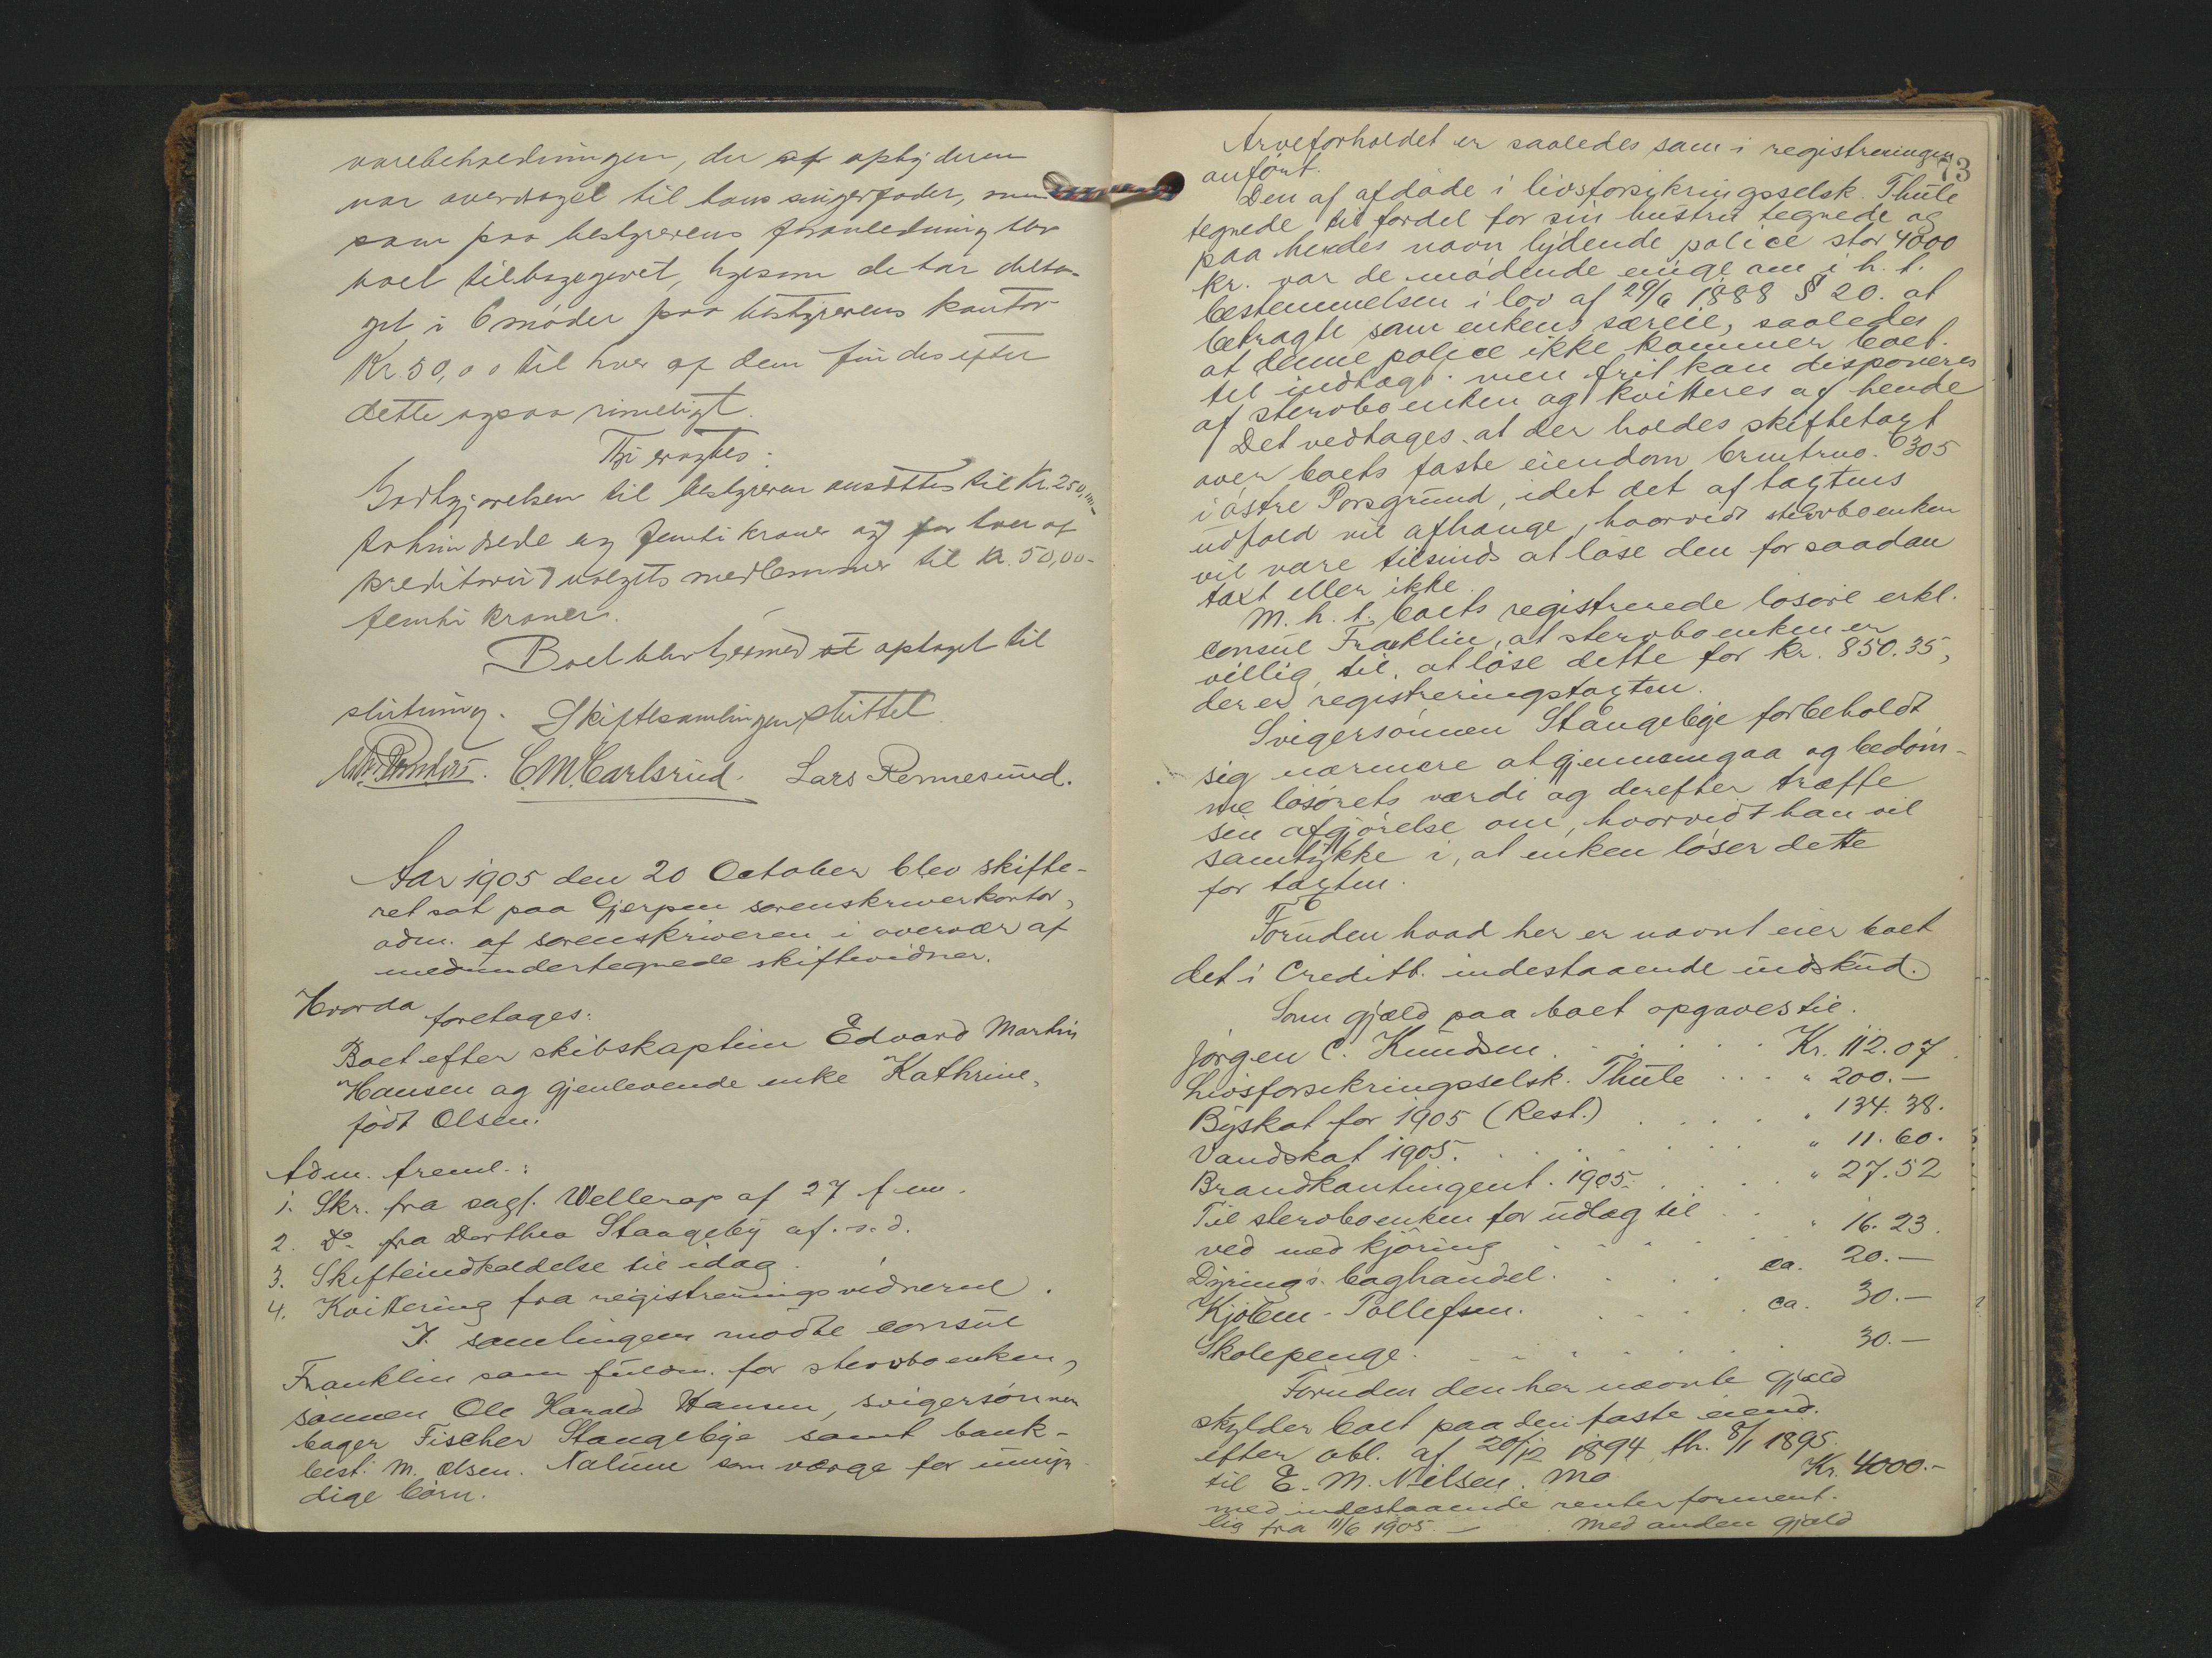 varebeholdningen, der af opbyderen
var overdraget til hans svigerfader, men
som paa bestyrerens foranledning blev
boet tilbagegivet, ligesom de har delta-
get i 6 møder paa bestyrerens kontor
Kr. 50,00 til hver af dem findes efter
dette ogsaa rimeligt.
Thi eragtes:
Godtgjørelsen til bestyreren ansættes til Kr. 250,00-
tohundrede og femti kroner og for hver af
kreditorudvalgets medlemmer til kr. 50,00-
femti kroner.
Boet blev hermed at optaget til
slutning. Skiftesamlingen sluttet.
C.M. Carlsrud. Lars Rennesund.
Aar 1905 den 20 October blev skifte-
ret sat paa Gjerpen sorenskriverkontor,
adm. af sorenskriveren i overvær af
medundertegnede skiftevidner.
Hvorda foretages:
Boet efter skibskaptein Edvard Martin
Hansen og gjenlevende enke Kathrine,
født Olsen.
Adm. freml.:
1. Skr. fra sagf. Wellerop af 27 f.m.
2. Do fra Dorthea Staageby af. s.d.
3. Skifteindkaldelse til idag.
4. Kvittering fra registreringsvidnerne.
I samlingen mødte consul
Franklin som fuldm. for stervboenken,
sønnen Ole Harald Hansen, svigersønnen
bager Fischer Stangebye samt bank-
best. M. Olsen. Nalum som værge for umyn-
dige børn.
73
Arveforholdet er saaledes som i registreringen
anført.
Den af afdøde i livsforsikringsselsk. Thule
tegnede til fordel for sin hustru tegnede og
paa hendes navn lydende police stor 4000
kr. var de mødende enige om i h. t.
bestemmelsen i lov af 29/6 1888 § 20. at
betragte som enkens særeie, saaledes
at denne police ikke kommer boet.
til indtægt. men frit kan disponeres
af stervboenken og kvitteres af hende
Det vedtages. at der holdes skiftetaxt
over boets faste eiendom brmtrno. 305
i østre Porsgrund, idet det af taxtens
udfald vil afhænge, hvorvidt stervboenken
vil være tilsinds at løse den for saadan
taxt eller ikke.
M. h. t. boets registrerede løsøre erkl.
consul Franklin, at stervboenken er
villig til, at løse dette for kr. 850.35,
der er registreringstaxten.
Svigersønnen Stangebye forbeholdt
sig nærmere at gjennemgaa og bedøm-
me løsørets værdi og derefter træffe
sin afgjørelse om, hvorvidt han vil
samtykke i, at enken løser dette
for taxten.
Foruden hvad her er nævnt eier boet
det i Creditb. indestaaende indskud.
Som gjæld paa boet opgaves til.
Jørgen C. Knudsen . . . . . Kr. 112.07.
Livsforsikringsselsk. Thule . . . " 200.—
Byskat for 1905 (Rest.) . . . . " 134.38.
Vandskat 1905. . . . . . . " 11.60.
Brandkontingent. 1905. . . . . " 27.52
Til stervboenken for udlæg til . .
ved med kjøring . . . . . " 16.23.
Dyrings. boghandel. . . . . ca. 20.—
Kjøbm. Tollefsen. . . . . ca. 30.—
Skolepenge. . . . . . . . 30.—
Foruden den her nævnte gjæld
skylder boet paa den faste eiend.
efter obl. af 20/12 1894, th. 8/1 1895.
til E. M. Nilsen. Mo Kr. 4000.-
med indestaaende renter forment-
lig fra 11/6 1905. — . Med anden gjæld